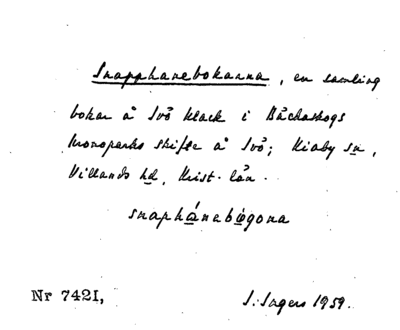 Snapphanebokarna, en samling
bokar å Ivö klack i Bäckaskogs
Kronoparks skifte å Ivö; Kiaby sn,
Villands hd, Krist. län.
snaphánebógona
Nr 7421,
S. Ingers 1959.